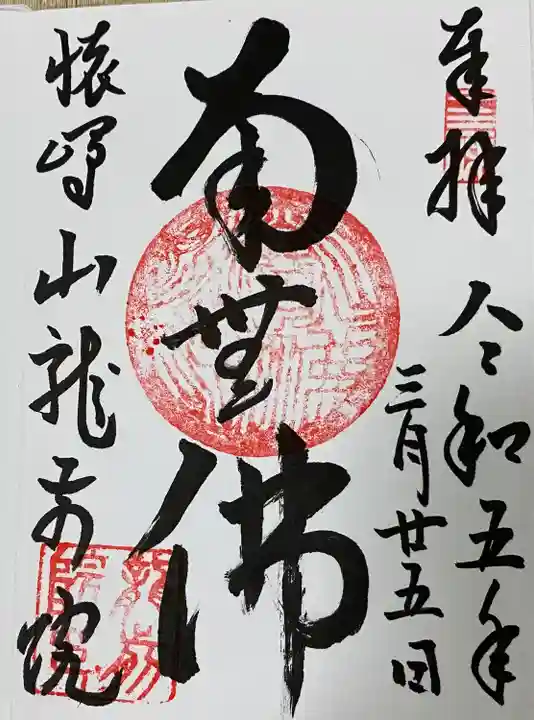 奉拝
令和五年
三月廿五日
南無佛
懐嶋山龍前院